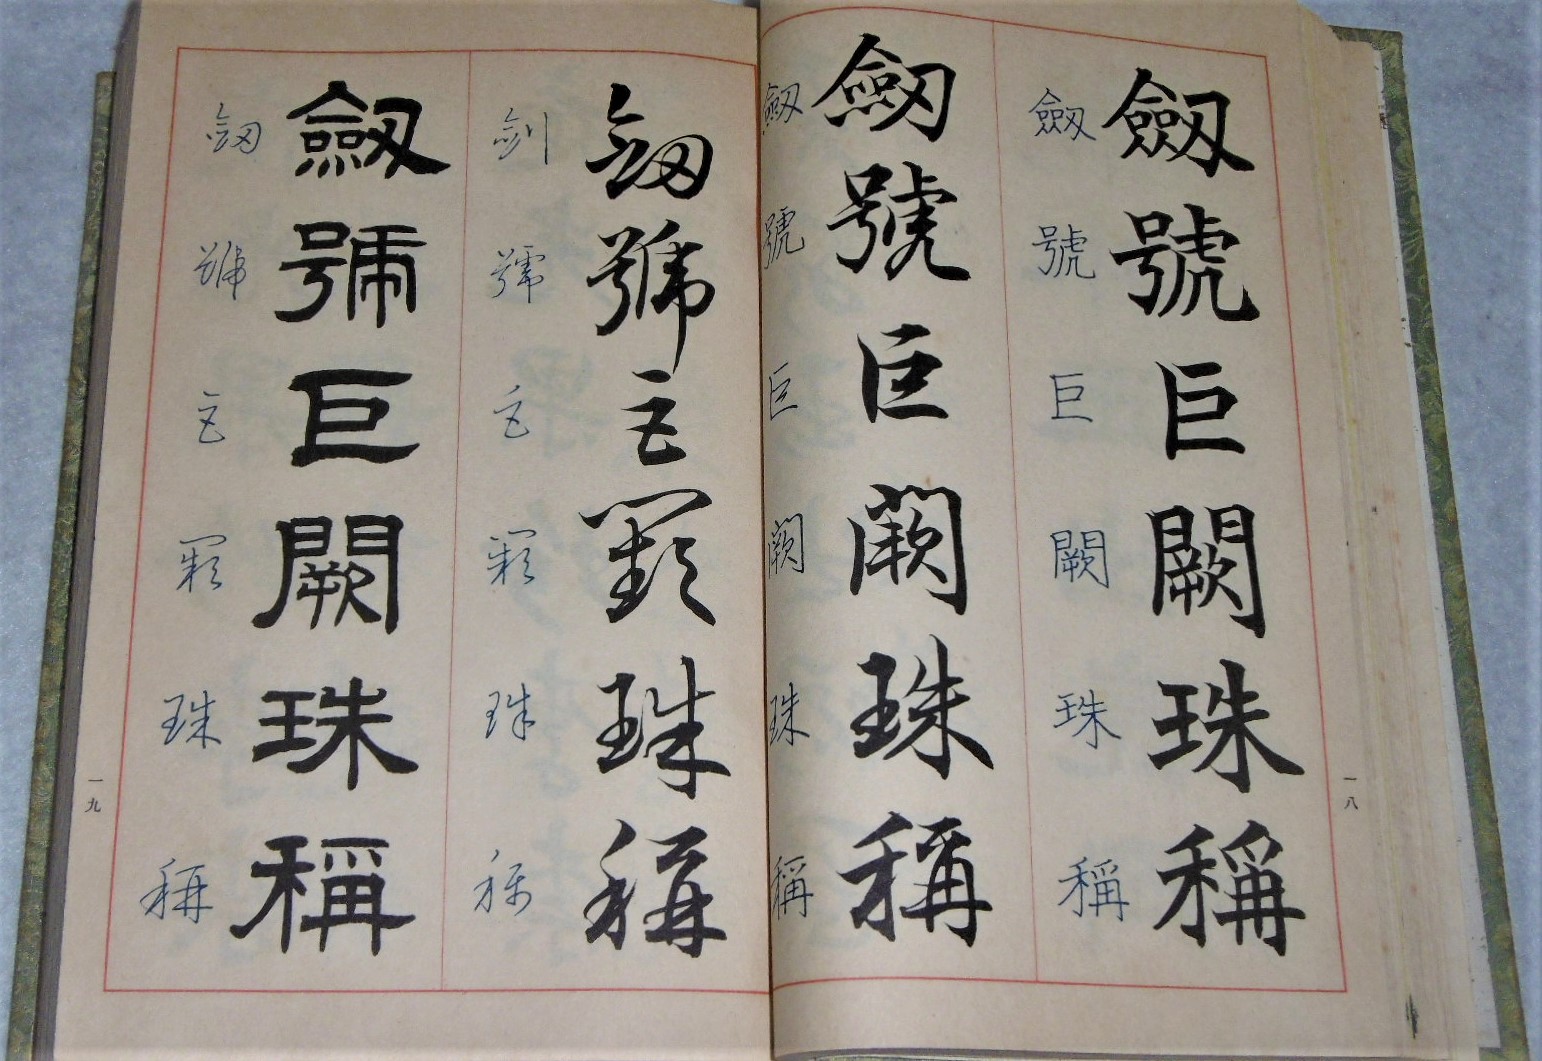 劔號巨闕珠稱
劔號巨闕珠稱
一八
劒號巨闕珠稱
劔號巨闕珠稱
劒號巨闕珠稱
劍號巨闕珠称
劔號巨闕珠稱
劒號巨闕珠稱
一九